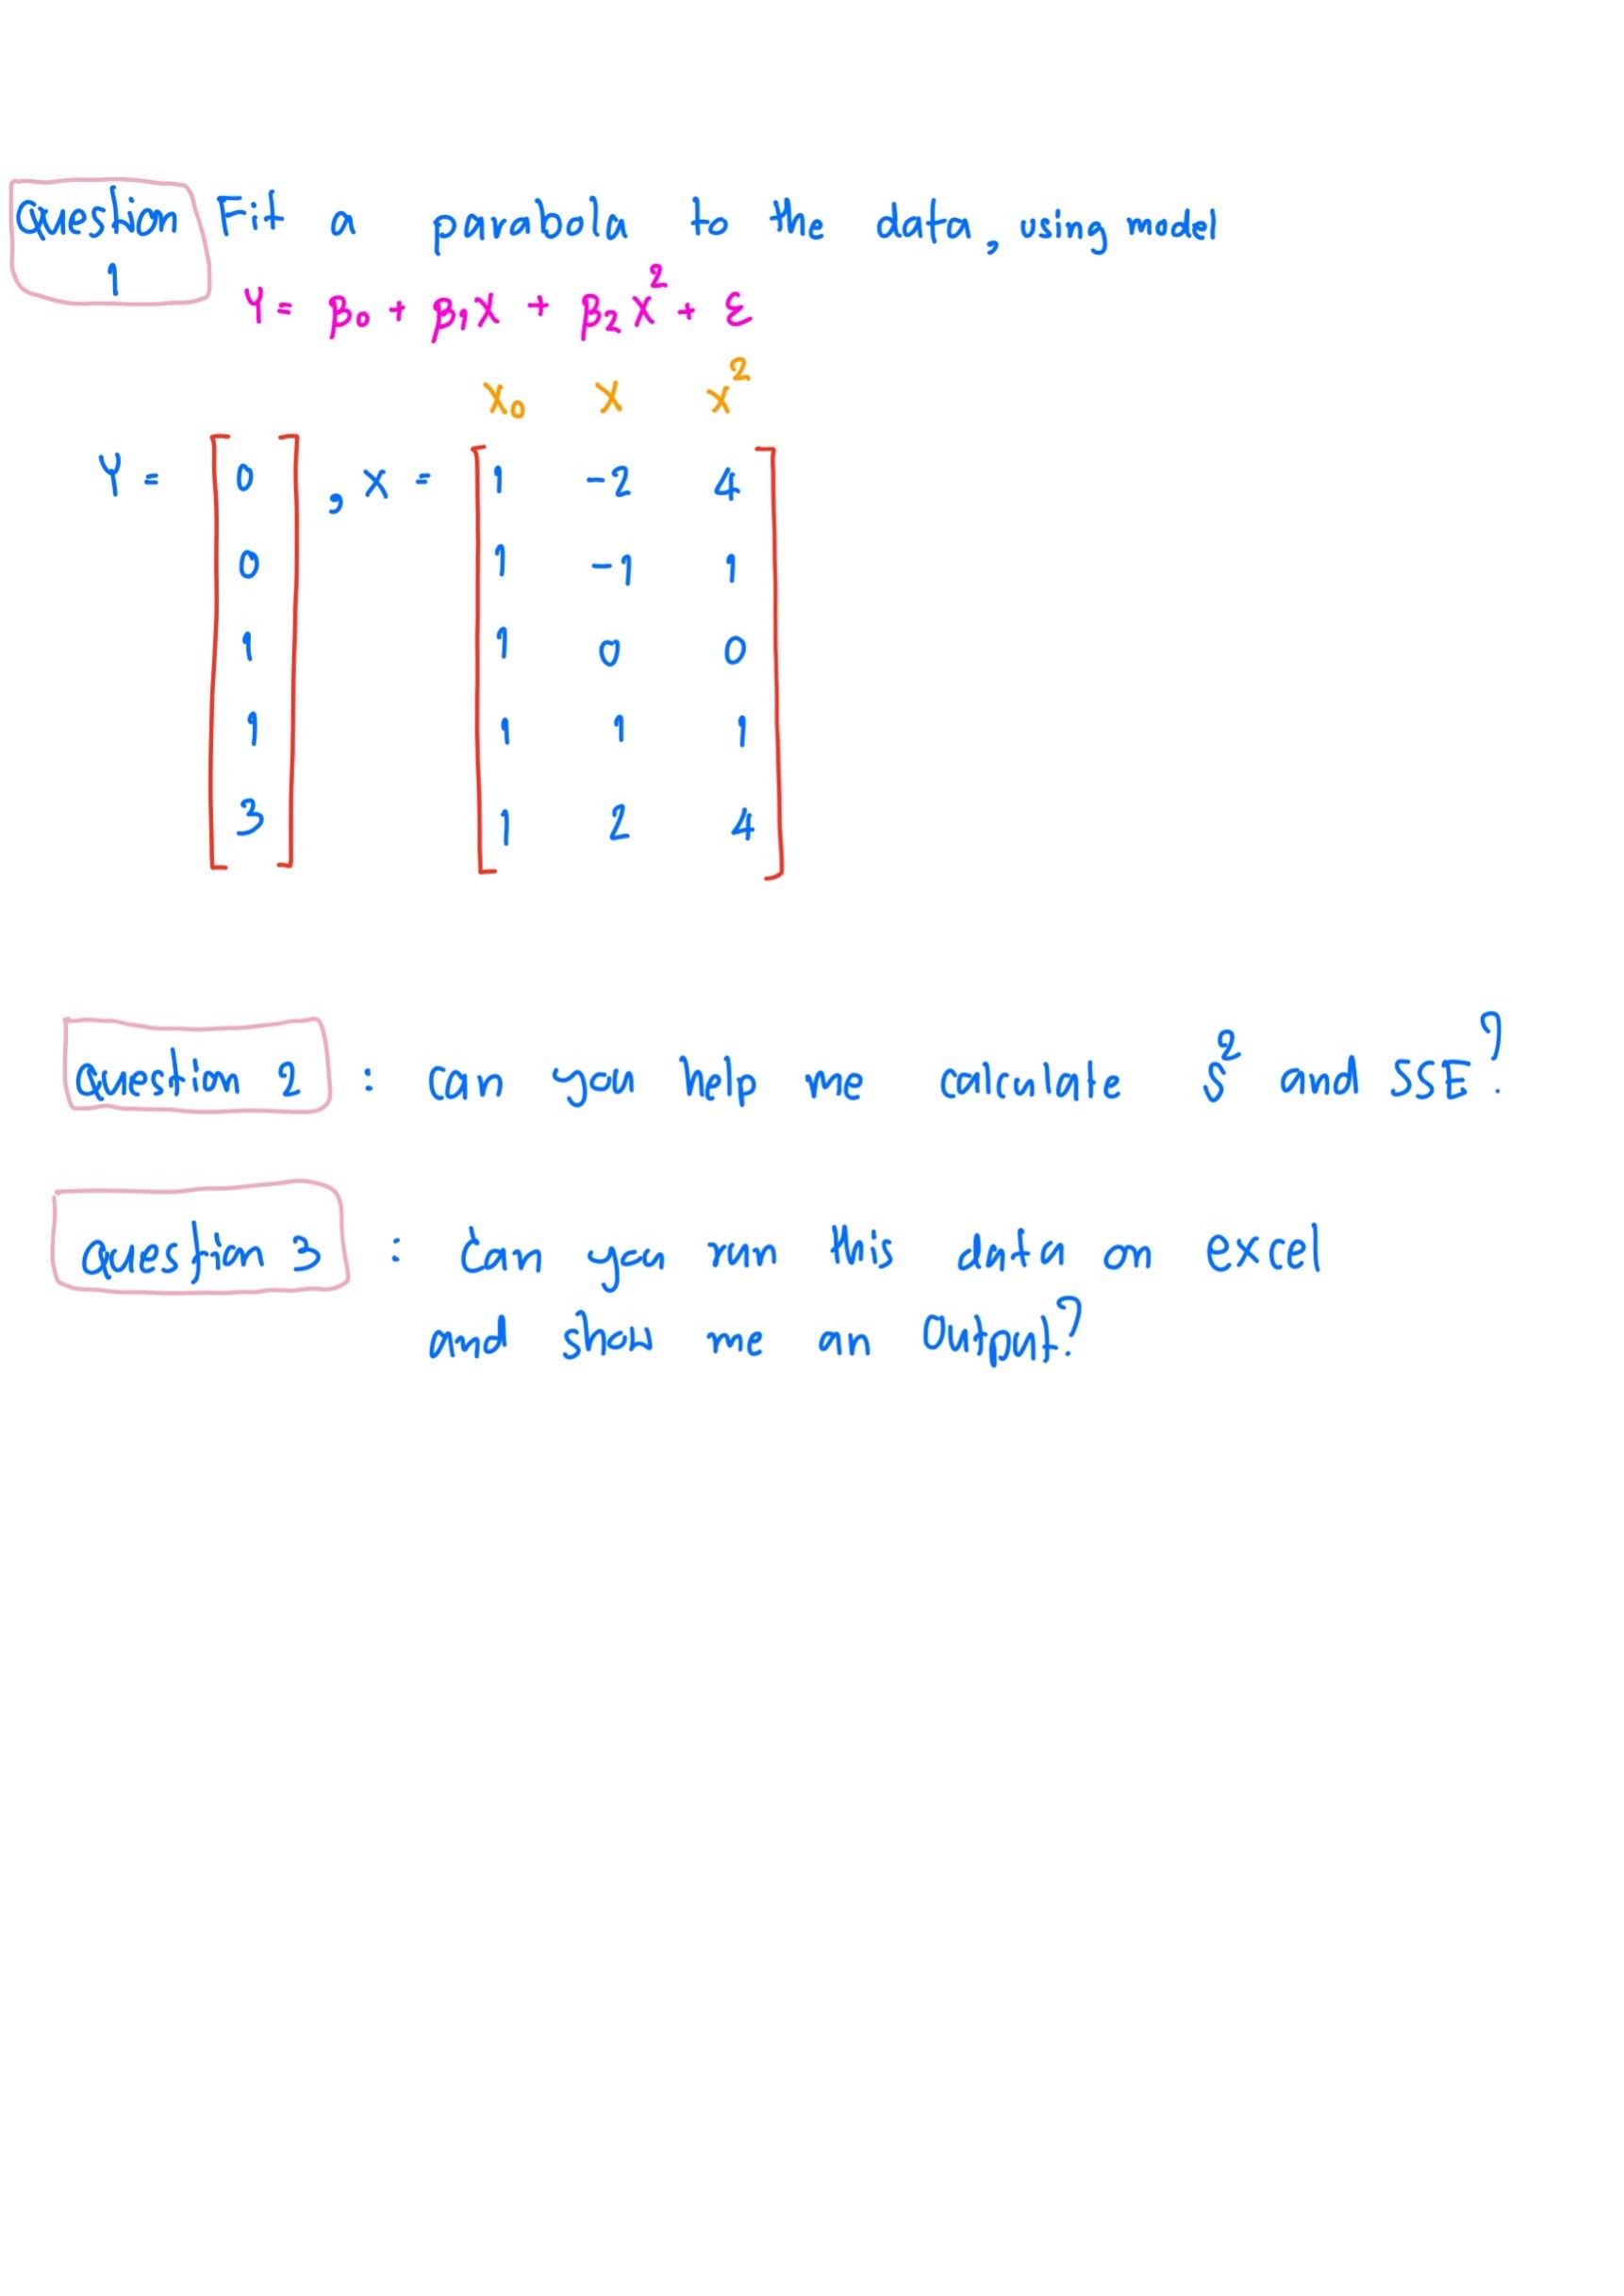 Question 1 Fit a parabola to the data, using model
Y = β₀ + β₁x + β₂x² + ε
x₀ x x²
Y = [ 0 , x = [ 1 -2 4
0 1 -1 1
1 1 0 0
1 1 1 1
3 ] 1 2 4 ]
Question 2 : can you help me calculate s² and SSE?
Question 3 : Can you run this data on excel
and show me an Output?